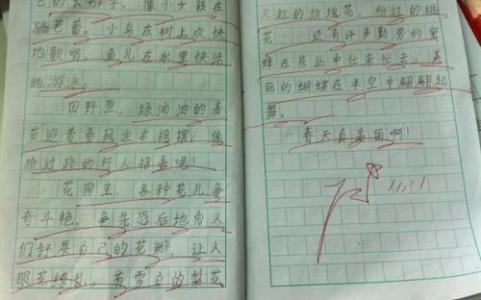 色的云朵下，像小女孩在
跳芭蕾。小鸟在树上欢快
地歌唱，鱼儿在水里快活
地游泳。
田野里，绿油油的麦
苗迎着春风左右摇摆，像
给过路的行人招手呢！
花园里，各种花儿争
奇斗艳，争先恐后地向人
们舒展自己的花瓣，让人
眼花缭乱，有雪白的梨花
火红的玫瑰花，粉红的桃
花……还有许多勤劳的蜜
蜂在花丛中忙来忙去，美
丽的蝴蝶在半空中翩翩起
舞。
春天真美丽啊！